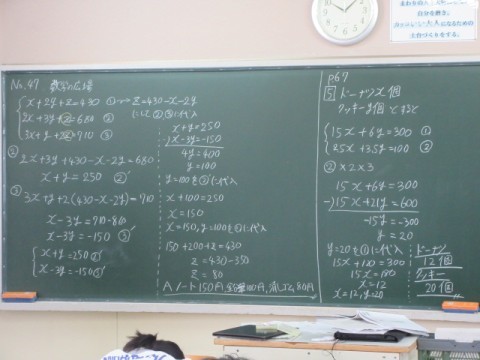 No.47 数学の広場
x+2y+z=430 ①
2x+3y+z=680 ②
3x+y+2z=710 ③
z=430-x-2y
にして②③に代入
② 2x+3y+430-x-2y=680
x+y=250 ②'
③ 3x+y+2(430-x-2y)=710
x-3y=710-860
x-3y=-150 ③'
x+y=250 ②'
x-3y=-150 ③'
x+y=250
-)x-3y=-150
4y=400
y=100
y=100を②'に代入
x+100=250
x=150
x=150, y=100を①に代入
150+200+z=430
z=430-350
z=80
A ノート150円, 100円, 消しゴム80円
P67
5 ドーナツx個
クッキーy個とすると
15x+6y=300 ①
25x+35y=100 ②
②×2×3
15x+6y=300
-)15x+21y=600
-15y=-300
y=20
y=20を①に代入
15x+120=300
15x=180
x=12
x=12, y=20
ドーナツ
12個
クッキー
20個